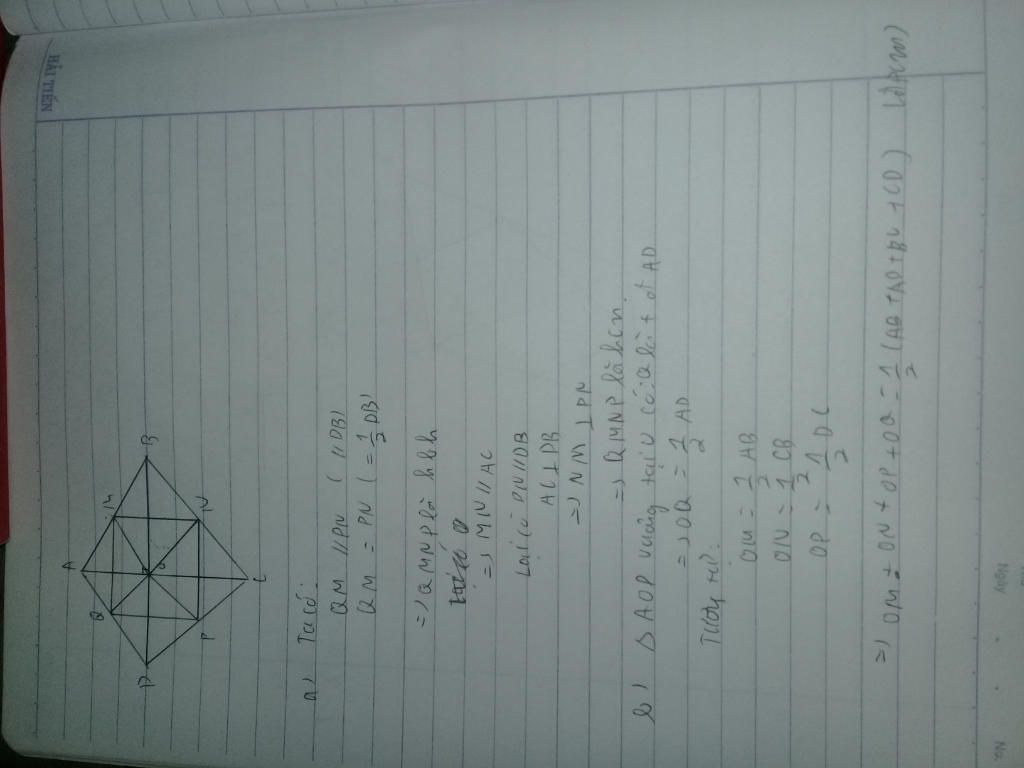 HẢI TIẾN
A
Q M
D B
O
P N
C
a) Ta có:
QM // PN ( // DB)
QM = PN ( = 1/2 DB)
=> QMNP là hbh
=> MN // AC
Lại có PN // DB
AC ⊥ DB
=> NM ⊥ PN
=> QMNP là hcn.
b) Δ AOD vuông tại O có: Q là t đ AD
=> OQ = 1/2 AD
Tương tự:
OM = 1/2 AB
ON = 1/2 CB
OP = 1/2 DC
=> OM + ON + OP + OQ = 1/2 (AB + AD + BC + CD) (đpcm)
Ngày
No.